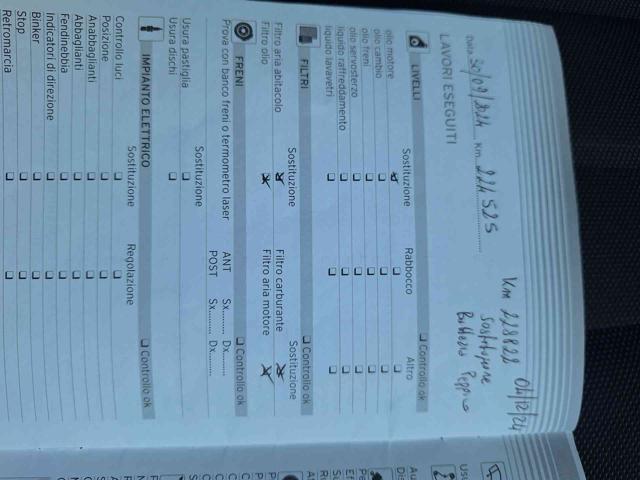 Km 228828 04/12/24
Sostituzione
Batteria Peppino
Data 30/09/2024 Km 224525
LAVORI ESEGUITI
LIVELLI Controllo ok
Sostituzione Rabbocco Altro
olio motore
olio cambio
olio freni
olio servosterzo
liquido raffreddamento
liquido lavavetri
FILTRI Controllo ok
Sostituzione Sostituzione
Filtro aria abitacolo Filtro carburante
Filtro olio Filtro aria motore
FRENI Controllo ok
Prova con banco freni o termometro laser ANT Sx......... Dx.........
POST Sx......... Dx.........
Sostituzione
Usura pastiglia
Usura dischi
IMPIANTO ELETTRICO Controllo ok
Sostituzione Regolazione
Controllo luci
Posizione
Anabbaglianti
Abbaglianti
Fendinebbia
Indicatori di direzione
Binker
Stop
Retromarcia